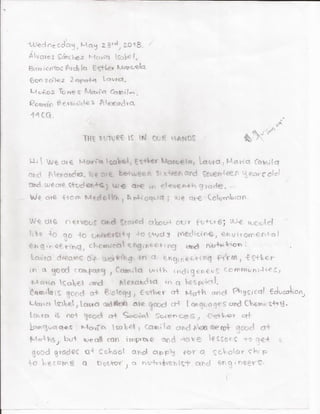 Wednesday, May 23rd, 2018.
Álvarez Sánchez María Isabel,
Padilla Esther Manuela
González Zapata Laura,
Muñoz Torres María Camila,
Román Bermúdez Alexandra
11°C.
THE FUTURE IS IN OUR HANDS
Hi! We are María Isabel, Esther Manuela, Laura, María Camila
and Alexandra, We are between Sixteen and Seventeen years old
and we are Students, we are in eleventh grade.
We are from Medellín, Antioquia; we are Colombian.
We are nervous and scared about our future; we would
like to go to university to study medicine, enviromental
engineering, chemical engineering and nutrition.
Laura dreams of working in a engineering firm, Esther
in a good company, Camila with indigenous communities,
María Isabel and Alexandra in a hospital.
Camila is good at Biology, Esther at Math and Physical Education,
María Isabel, Laura and are good at Languages and Chemistry.
Laura is not good at Social Sciences, Esther at
Languages María Isabel, Camila and Alexandra good at
Maths, but we all can improve and take lessons to get
good grades at school and apply for a scholarship
to become a Doctor, a nutritionist and engineers.